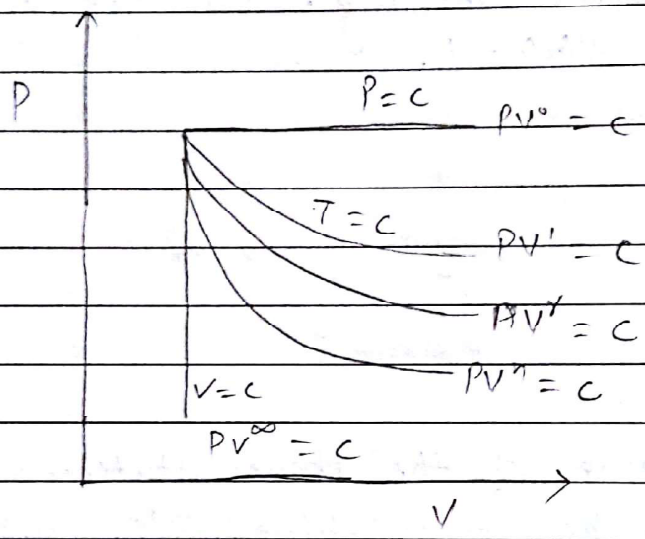 P
P = C
PV⁰ = C
T = C
PV¹ = C
PVᵞ = C
PVⁿ = C
V = C
PV^∞ = C
V